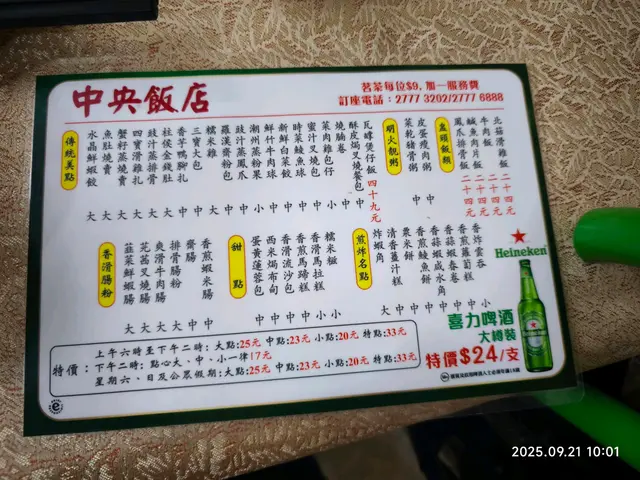 中央飯店
茗茶每位$9, 加一服務費
訂座電話：2777 3202/2777 6888
傳統美點
水晶鮮蝦餃 大
魚肚燒賣 大
蟹籽蒸燒賣 大
四寶滑雞扎 大
豉汁蒸排骨 中
柱侯金錢肚 大
香芋鴨腳扎 中
三寶大包 大
糯米雞
羅漢齋粉包 中
豉汁蒸鳳爪 中
潮州蒸粉果 小
鮮竹牛肉球 中
新鮮白菜餃 中
時菜鯪魚球 中
蜜汁叉燒包 中
菜肉雞包仔
燒腩卷
酥皮焗叉燒餐包
瓦罉煲仔飯 四十九元
明火靚粥
菜乾豬骨粥 中
皮蛋瘦肉粥 中
盅頭飯類
鳳爪排骨飯 二十四元
鹹魚肉片飯 二十四元
牛肉飯 二十四元
北菇滑雞飯 二十四元
香滑腸粉
韮菜鮮蝦腸 大
芫茜叉燒腸 大
爽滑牛肉腸 大
排骨腸粉 大
齋腸 中
香煎蝦米腸 中
甜點
蛋黃蓮蓉包 中
西米焗布甸 中
香滑流沙包 中
香煎馬蹄糕 中
香滑馬拉糕 小
糯米糍 小
煎炸名點
炸蝦角 大
清香薑汁糕 中
農米餅 中
香煎鯪魚餅 中
香蒜蝦咸水角 中
香煎蘿蔔糕 中
香蝦春卷 中
香炸雲吞 小
Heineken
喜力啤酒
大樽裝
特價$24/支
特價：
上午六時至下午二時：大點:25元 中點:23元 小點:20元 特點:33元
下午二時：點心大、中、小一律17元
星期六、日及公眾假期：大點:25元 中點:23元 小點:20元 特點:33元
2025.09.21 10:01